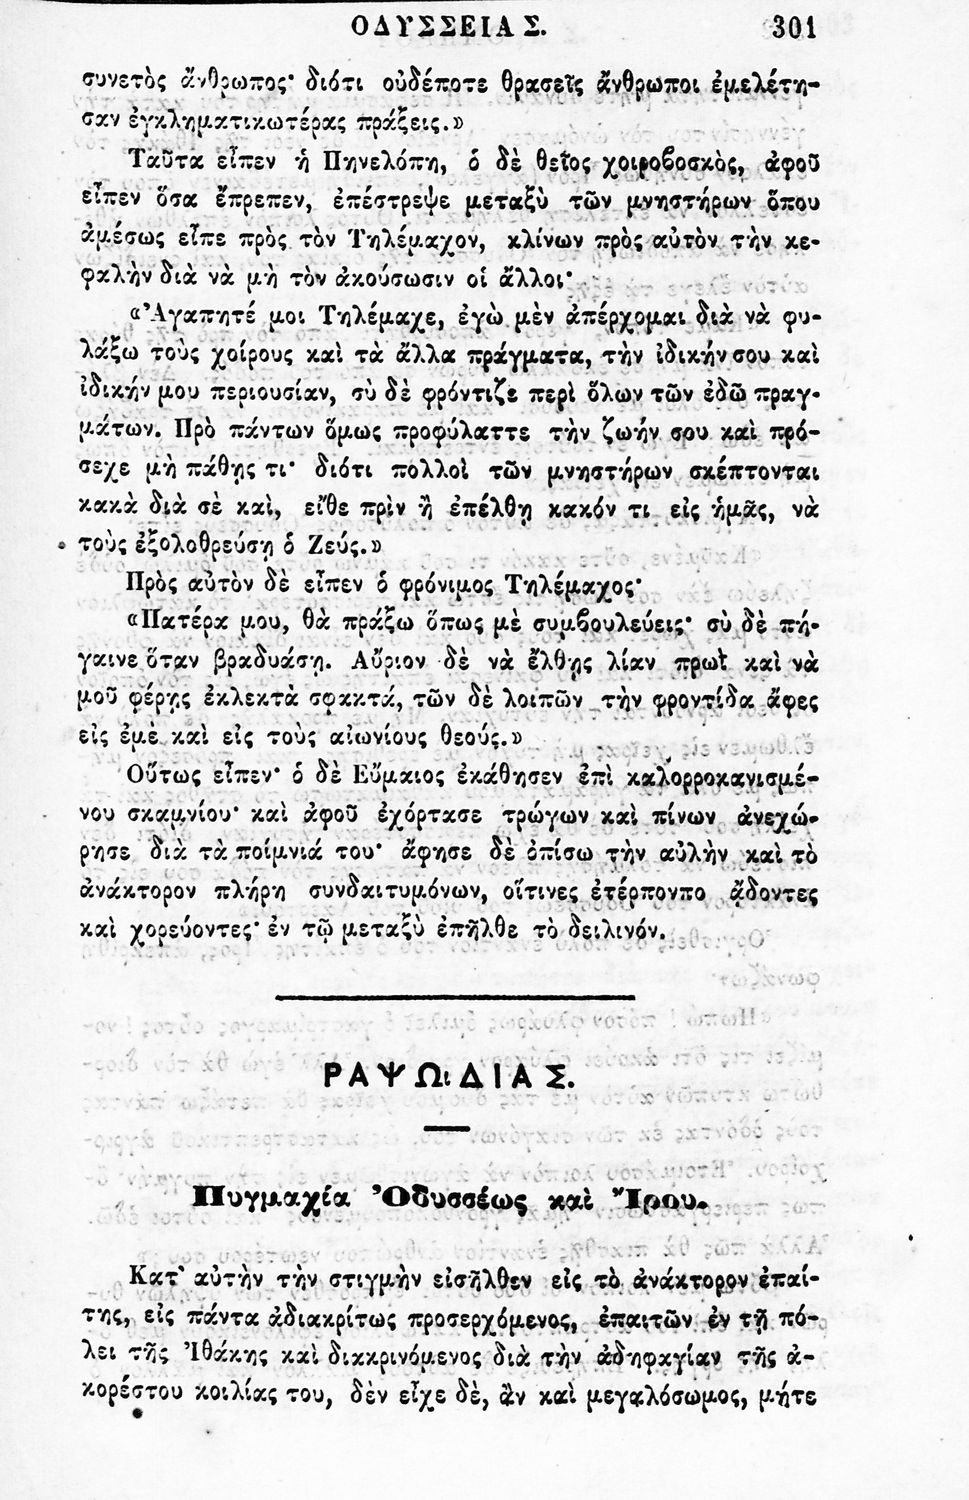 ΟΔΥΣΣΕΙΑ Σ. 301
συνετὸς ἄνθρωπος· διότι οὐδέποτε θρασεῖς ἄνθρωποι ἐμελέτη-
σαν ἐγκληματικωτέρας πράξεις.»
Ταῦτα εἶπεν ἡ Πηνελόπη, ὁ δὲ θεῖος χοιροβοσκὸς, ἀφοῦ
εἶπεν ὅσα ἔπρεπεν, ἐπέστρεψε μεταξὺ τῶν μνηστήρων ὅπου
ἀμέσως εἶπε πρὸς τὸν Τηλέμαχον, κλίνων πρὸς αὐτὸν τὴν κε-
φαλὴν διὰ νὰ μὴ τὸν ἀκούσωσιν οἱ ἄλλοι·
«Ἀγαπητέ μοι Τηλέμαχε, ἐγὼ μὲν ἀπέρχομαι διὰ νὰ φυ-
λάξω τοὺς χοίρους καὶ τὰ ἄλλα πράγματα, τὴν ἰδικήν σου καὶ
ἰδικήν μου περιουσίαν, σὺ δὲ φρόντιζε περὶ ὅλων τῶν ἐδῶ πραγ-
μάτων. Πρὸ πάντων ὅμως προφύλαττε τὴν ζωήν σου καὶ πρό-
σεχε μὴ πάθῃς τι· διότι πολλοὶ τῶν μνηστήρων σκέπτονται
κακὰ διὰ σὲ καὶ, εἴθε πρὶν ἢ ἐπέλθῃ κακόν τι εἰς ἡμᾶς, νὰ
τοὺς ἐξολοθρεύσῃ ὁ Ζεύς.»
Πρὸς αὐτὸν δὲ εἶπεν ὁ φρόνιμος Τηλέμαχος·
«Πατέρα μου, θὰ πράξω ὅπως μὲ συμβουλεύεις· σὺ δὲ πή-
γαινε ὅταν βραδυάσῃ. Αὔριον δὲ νὰ ἔλθῃς λίαν πρωῒ καὶ νὰ
μοῦ φέρῃς ἐκλεκτὰ σφακτά, τῶν δὲ λοιπῶν τὴν φροντίδα ἄφες
εἰς ἐμὲ καὶ εἰς τοὺς αἰωνίους θεούς.»
Οὕτως εἶπεν· ὁ δὲ Εὔμαιος ἐκάθησεν ἐπὶ καλορροκανισμέ-
νου σκαμνίου· καὶ ἀφοῦ ἐχόρτασε τρώγων καὶ πίνων ἀνεχώ-
ρησε διὰ τὰ ποίμνιά του· ἄφησε δὲ ὀπίσω τὴν αὐλὴν καὶ τὸ
ἀνάκτορον πλήρη συνδαιτυμόνων, οἵτινες ἐτέρπονπο ᾄδοντες
καὶ χορεύοντες· ἐν τῷ μεταξὺ ἐπῆλθε τὸ δειλινόν.
ΡΑΨΩιΔΙΑ Σ.
Πυγμαχία Ὀδυσσέως καὶ Ἴρου.
Κατ' αὐτὴν τὴν στιγμὴν εἰσῆλθεν εἰς τὸ ἀνάκτορον ἐπαί-
της, εἰς πάντα ἀδιακρίτως προσερχόμενος, ἐπαιτῶν ἐν τῇ πό-
λει τῆς Ἰθάκης καὶ διακρινόμενος διὰ τὴν ἀδηφαγίαν τῆς ἀ-
κορέστου κοιλίας του, δὲν εἶχε δὲ, ἂν καὶ μεγαλόσωμος, μήτε